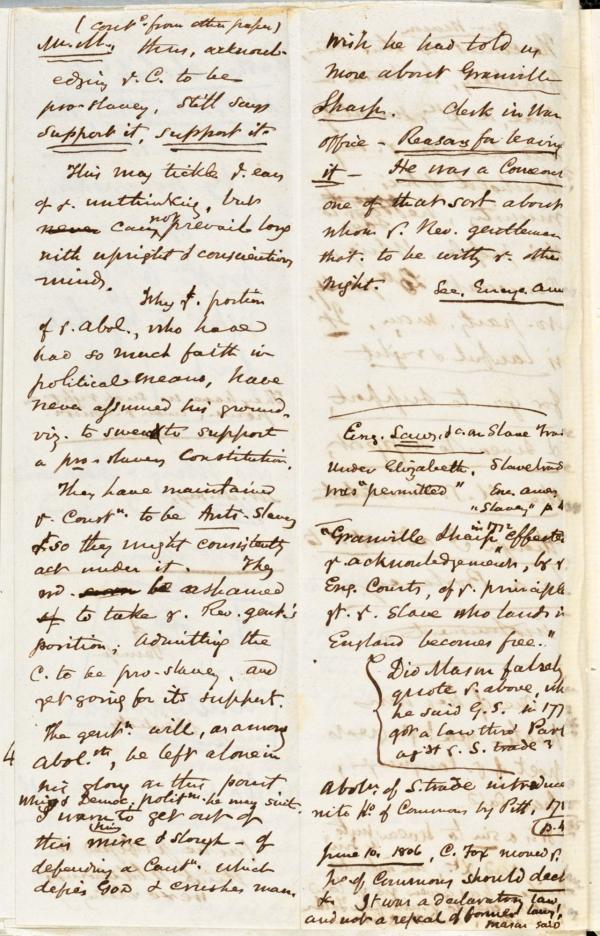 (cont'd. from other paper)
Mr. M., thus, acknowl-
edging y. C. to be
pro-slavery, still says
support it, support it.
This may tickle y. ears
of y. unthinking, but
never can not prevail long
with upright & conscientious
minds.
Why yt. portion
of y. Abol., who have
had so much faith in
political means, have
never assumed his ground,
viz. to swear to support
a pro-slavery Constitution.
They have maintained
y. Constn. to be Anti-Slavery
& so they might consistently
act under it. They
wd. be ashamed
to take y. Rev. gent's
position; admitting the
C. to be pro-slavery, and
yet going for its support.
The gentn. will, as among
4 Abol.ts, be left alone in
his glory on this point
Whigs & Democ. politns. he may suit.
I want to get out of
this mire & slough - of
defending a Constn. which
defies God & crushes man.
wish he had told us
more about Granville
Sharp. Clerk in War
office - Reasons for leaving
it - He was a Comeout
one of that sort about
whom y. Rev. gentleman
thot. to be witty y. other
night. See. Ency. Am
Eng. Laws, &c. on Slave Trad
under Elizabeth, Slave trad
was "permitted" Enc. Amer
"Slavery" p 4
"Granville Sharp in 1772 effected
y. acknowledgement, by y.
Eng. Courts, of y. principle
yt. y. Slave who lands in
England becomes free."
Did Mason falsely
quote y. above, wh
he said G.S. in 177
got a law thro' Parl
agst y. S. trade?
Aboln. of S. trade introduce
into Ho. of Commons by Pitt, 17
p. 4
June 10. 1806, C. Fox moved y.
Ho. of Commons should decl
& It was a declaratory law,
and not a repeal of former laws!
Mason said